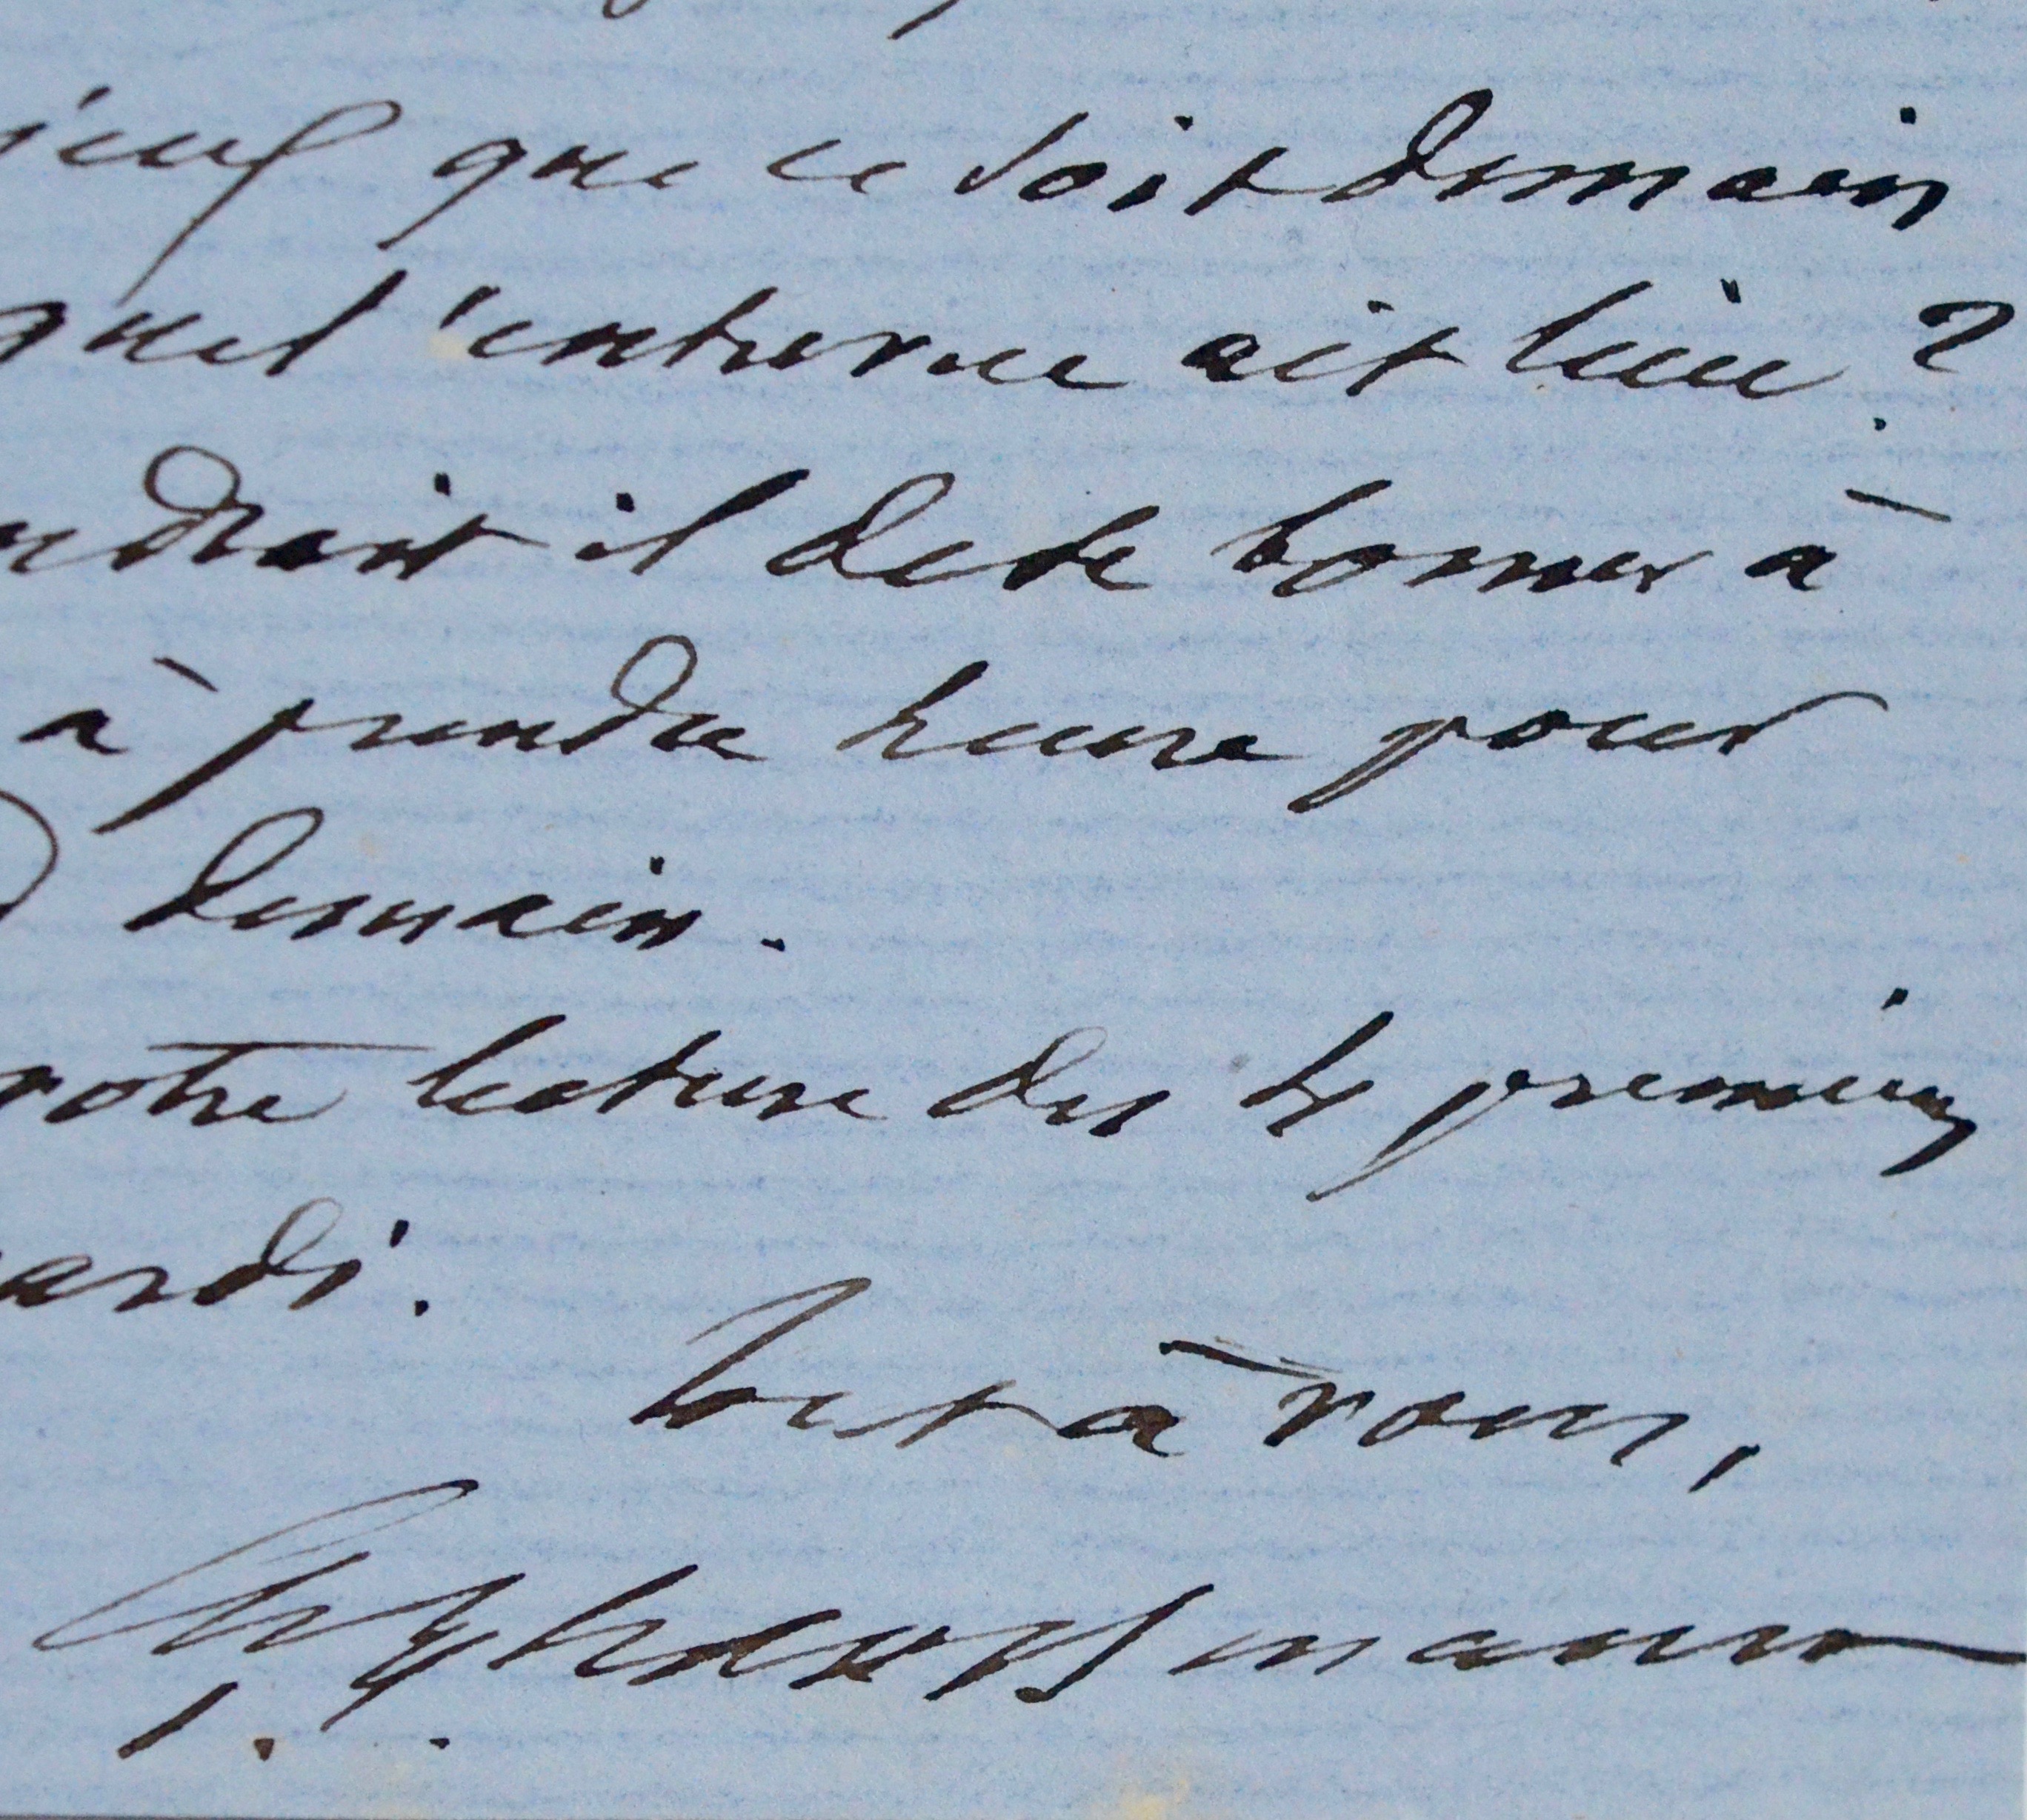 que ce soit demain
que l'entrevue ait lieu ?
udrait il se borner à
à prendre heure pour
demain.
votre lecture des 4 premiers
ardi.
Tout à vous,